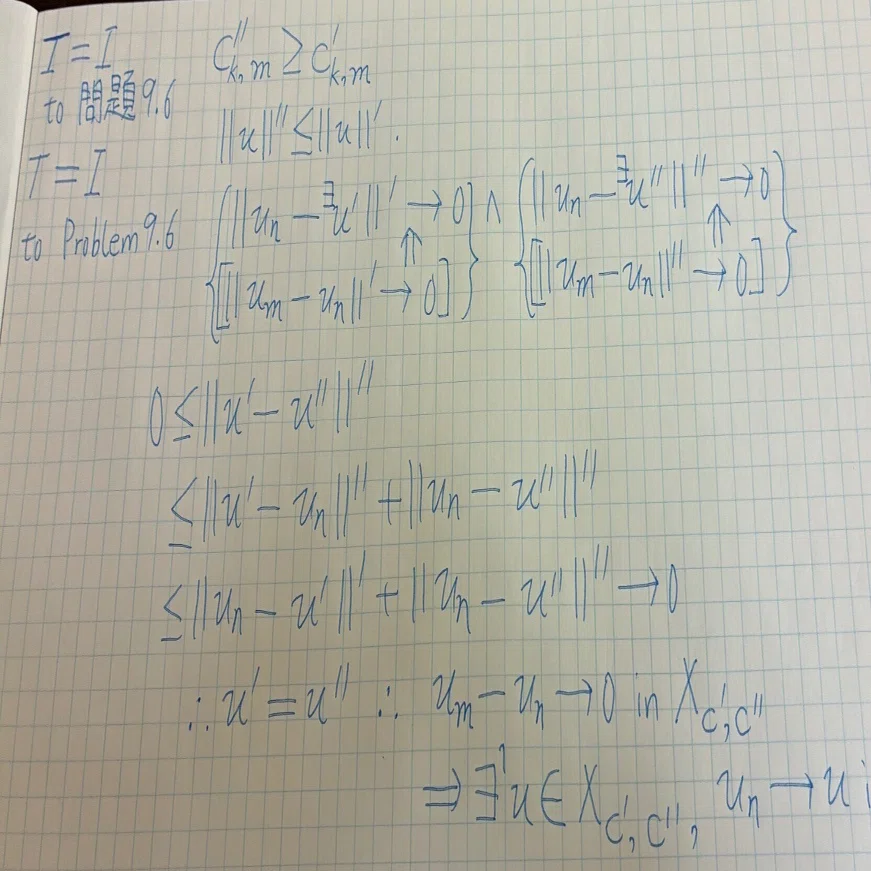 I = I
to 問題9.6
T = I
to Problem 9.6
C''ₖ,ₘ ≥ C'ₖ,ₘ
||u||'' ≤ ||u||'.
{||uₙ − ∃u'||' → 0} ∧ {||uₙ − ∃u''||'' → 0}
⇑ ⇑
{[||uₘ − uₙ||' → 0]} {[||uₘ − uₙ||'' → 0]}
0 ≤ ||u' − u''||''
≤ ||u' − uₙ||'' + ||uₙ − u''||''
≤ ||uₙ − u'||' + ||uₙ − u''||'' → 0
∴ u' = u'' ∴ uₘ − uₙ → 0 in X_{C',C''}
⇒ ∃¹u ∈ X_{C',C''}, uₙ → u